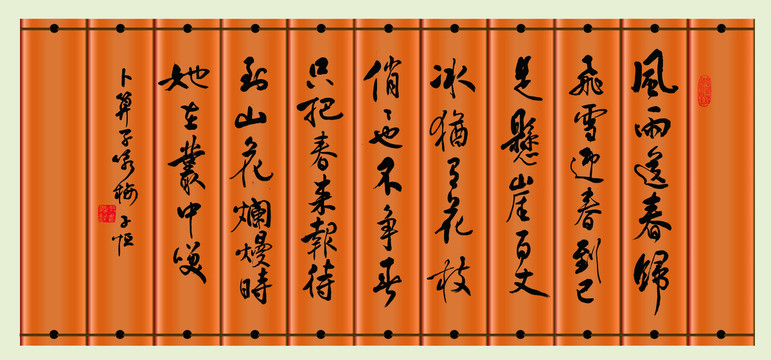 風雨送春歸
飛雪迎春到已
是懸崖百丈
冰猶有花枝
俏也不争春
只把春来報待
到山花爛熳時
她在叢中笑
卜算子咏梅 子恒